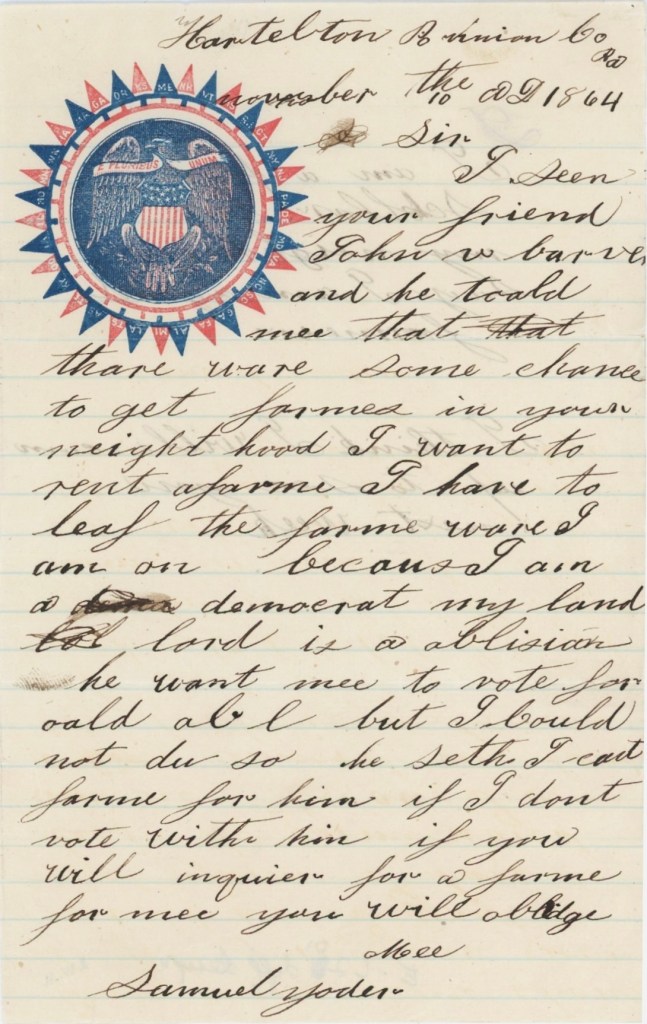 Hartelton Union Co
Pa
november the 10 AD 1864
Sir
I seen
your friend
John w barver
and he toald
mee that that
thare ware some chance
to get farmes in your
neight hood I want to
rent a farme I have to
leaf the farme ware I
am on becaus I am
a democrat my land
lord is a ablisian
he want mee to vote for
oald abl but I Could
not du so he seth I cant
farme for him if I dont
vote with him if you
will inquier for a farme
for mee you will oblidge
Mee
Samuel yoder
E PLURIBUS UNUM